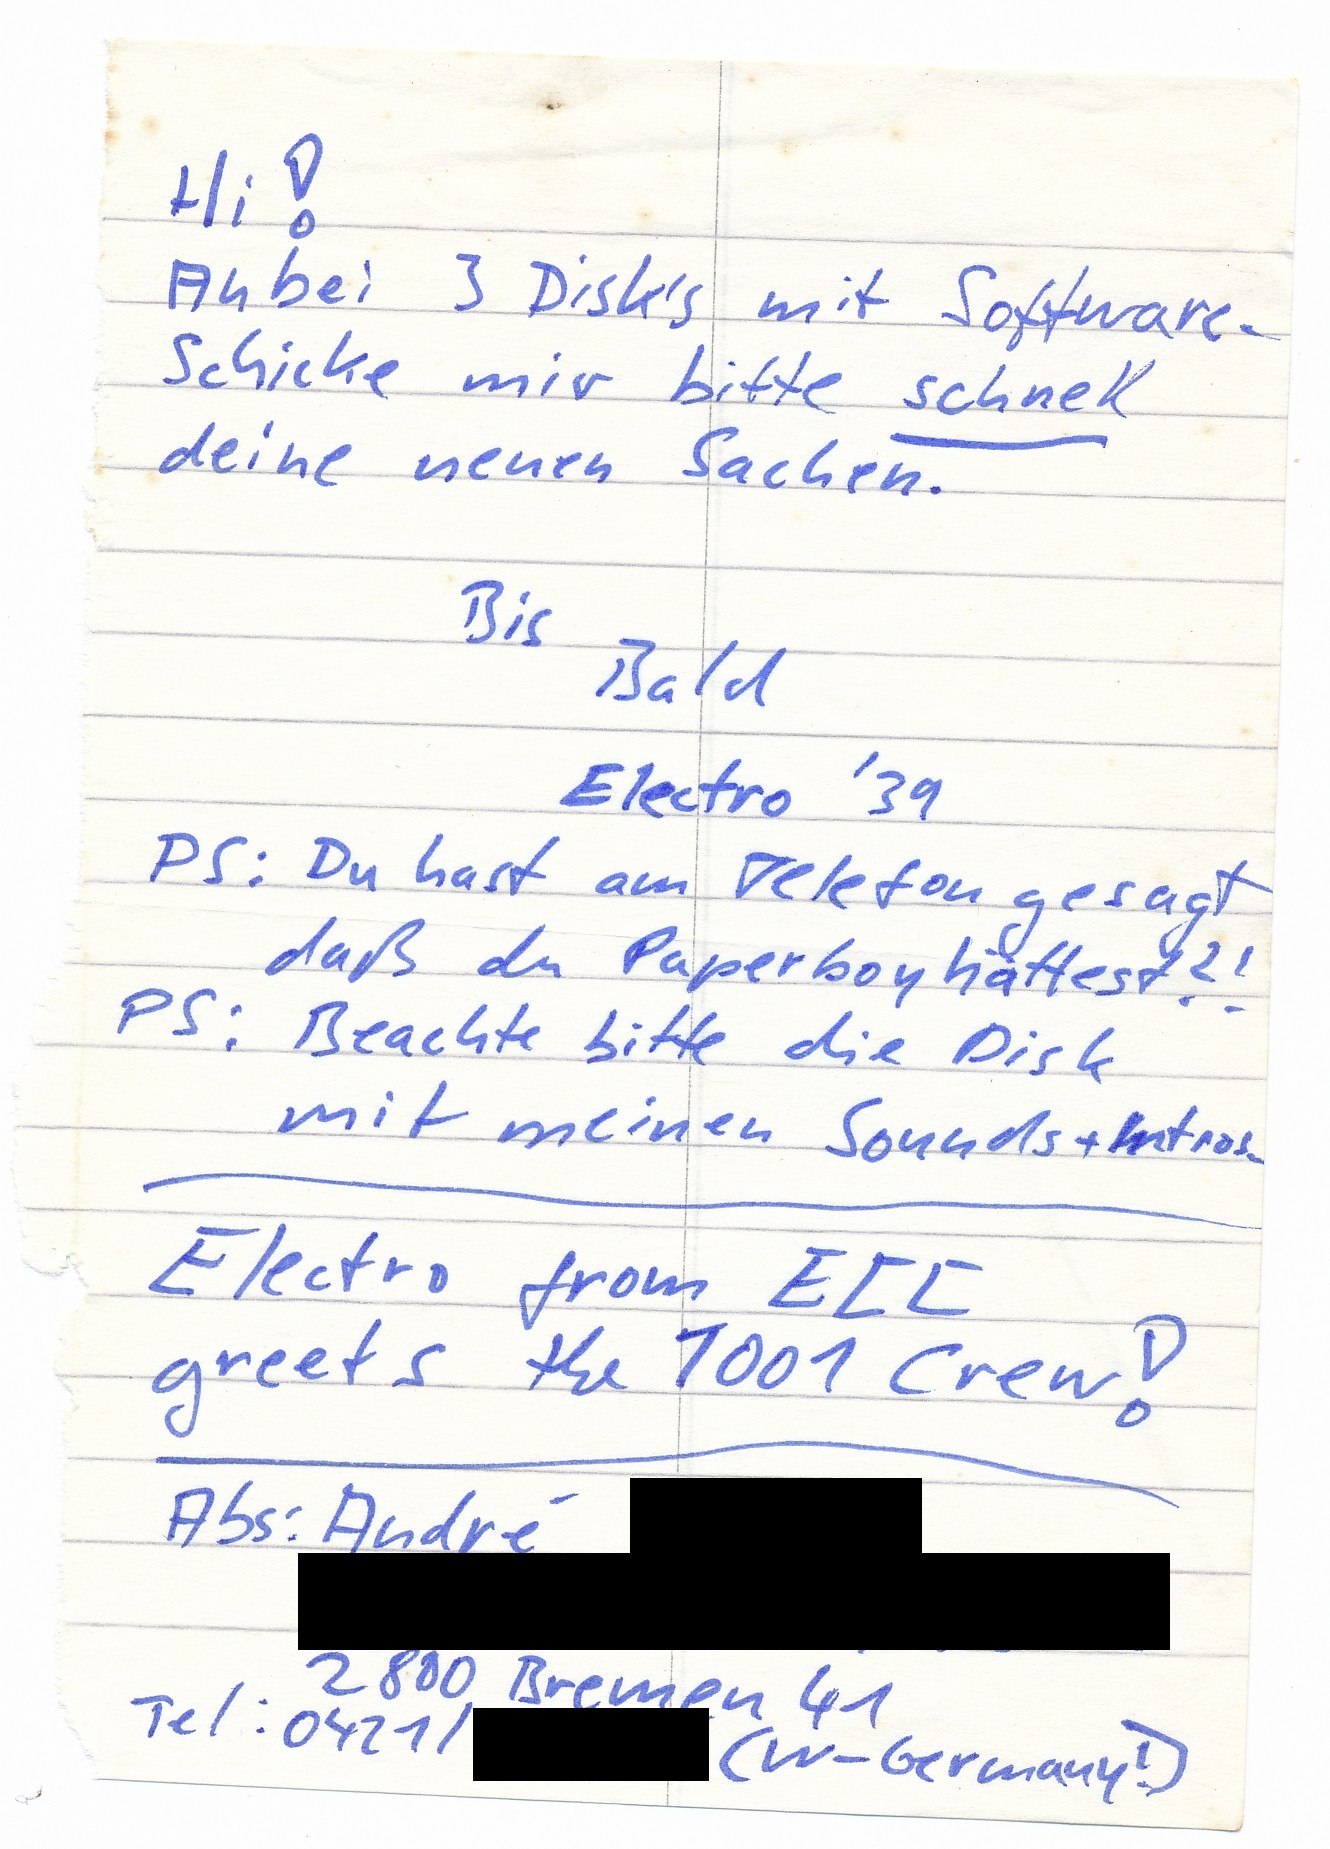 Hi!
Anbei 3 Disk's mit Software.
Schicke mir bitte schnell
deine neuen Sachen.
Bis
Bald
Electro '39
PS: Du hast am Telefon gesagt
daß du Paperboy hättest?!
PS: Beachte bitte die Disk
mit meinen Sounds + Intros.
Electro from ECC
greets the 1001 Crew!
Abs: André
2800 Bremen 41
Tel: 0421/ (W-Germany!)